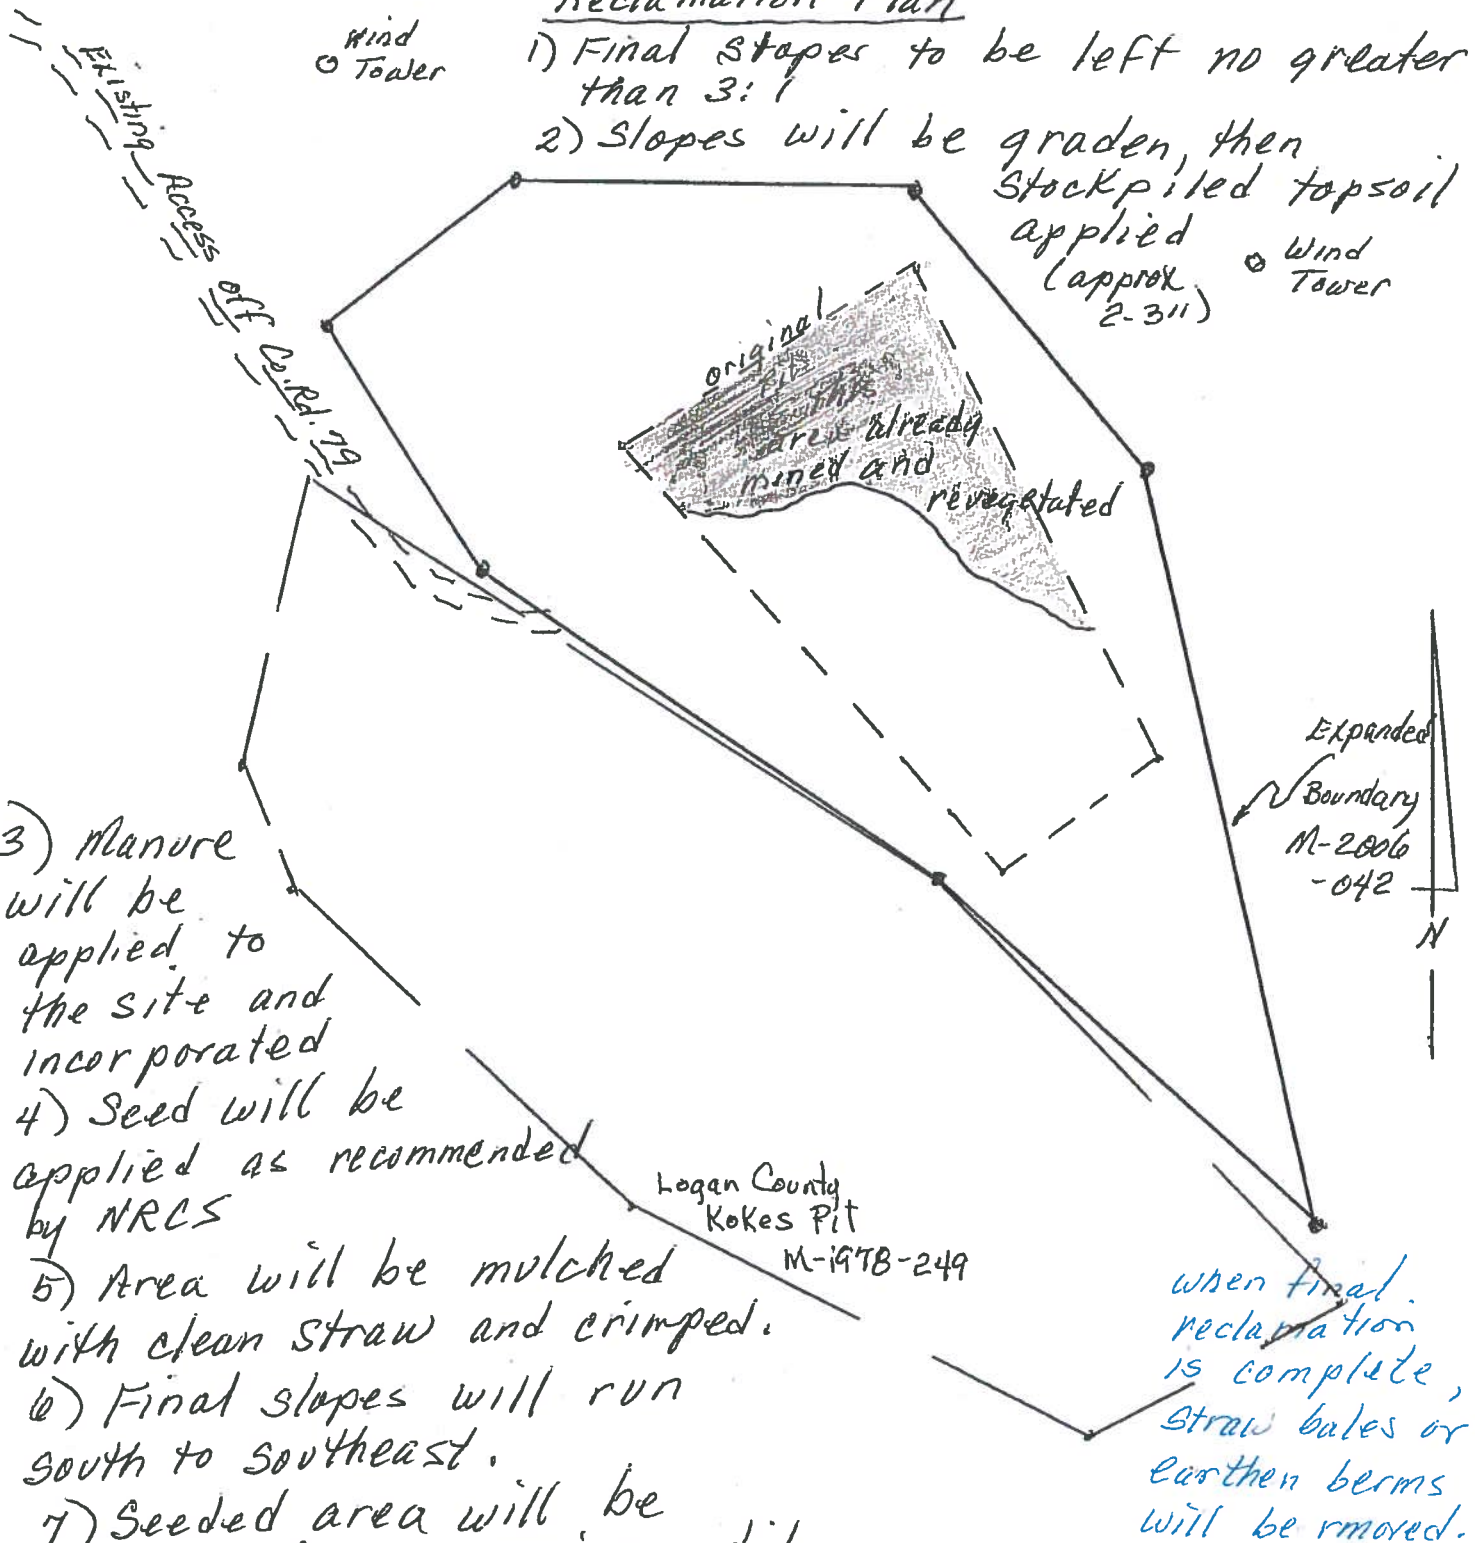 Reclamation Plan
1) Final Slopes to be left no greater
than 3:1
2) Slopes will be graden, then
stockpiled topsoil
applied
(approx.
2-3")
Wind
Tower
Wind
Tower
Existing Access off Co. Rd. 79
original
pit
this
area already
mined and
revegetated
Expanded
Boundary
M-2006
-042
N
3) Manure
will be
applied to
the site and
incorporated
4) Seed will be
applied as recommended
by NRCS
5) Area will be mulched
with clean straw and crimped.
6) Final slopes will run
south to southeast.
7) Seeded area will be
Logan County
Kokes Pit
M-1978-249
when final
reclamation
is complete,
straw bales or
earthen berms
will be rmoved.